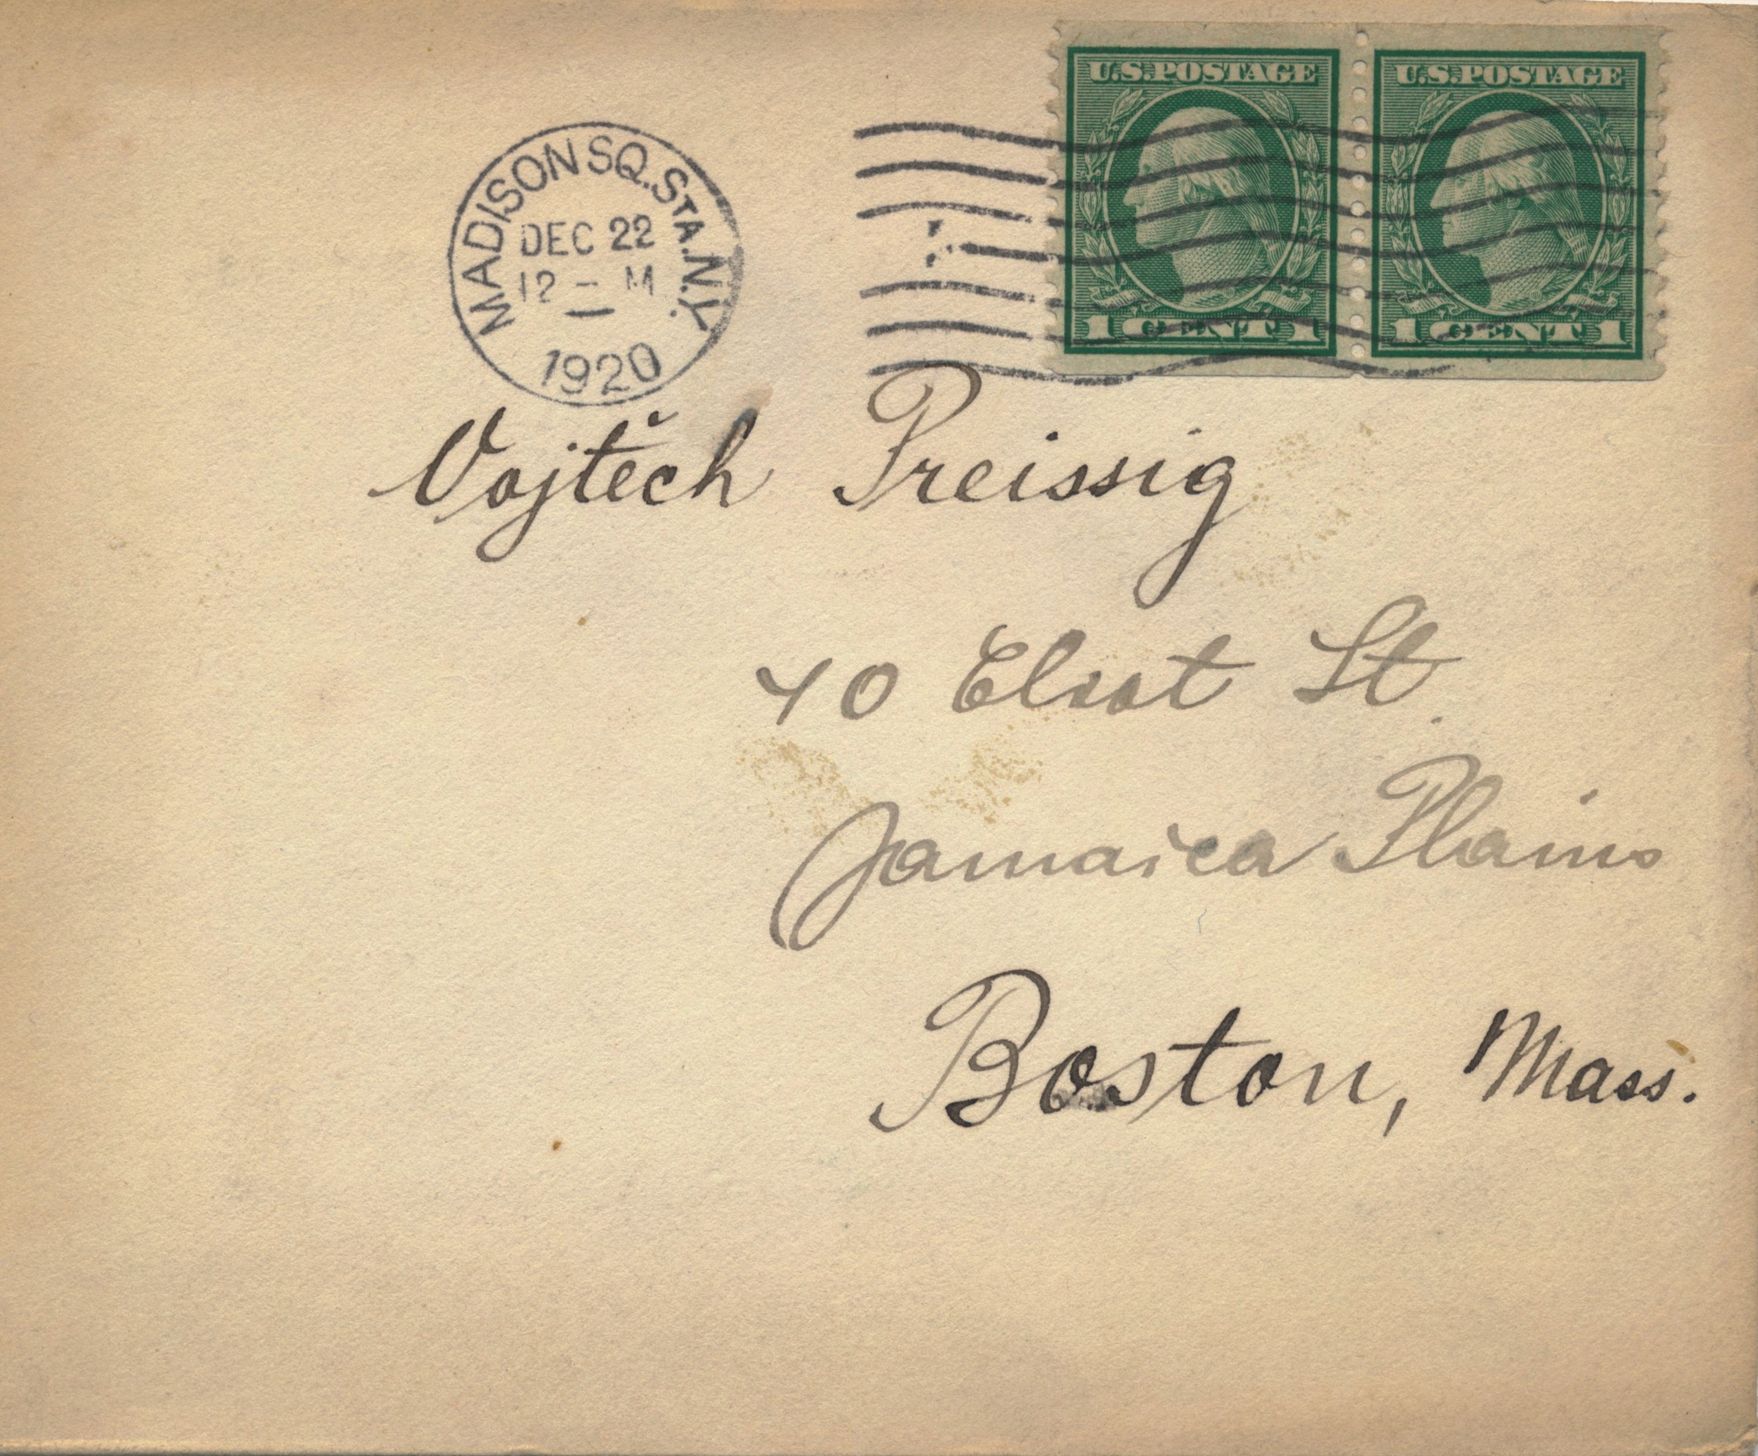 U.S. POSTAGE U.S. POSTAGE
1 CENT 1 1 CENT 1
MADISON SQ. STA. N.Y.
DEC 22
12 - M
1920
Vojtěch Preissig
40 Eliot St.
Jamaica Plains
Boston, Mass.